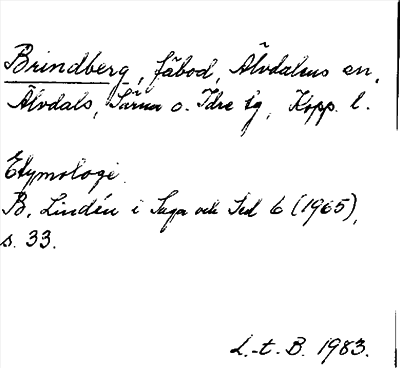 Brindberg, fäbod, Älvdalens sn,
Älvdals, Särna o. Idre tg, Kopp. l.
Etymologi
B. Lindén i Saga och Sed 6 (1965),
s. 33.
L.-t. B. 1983.